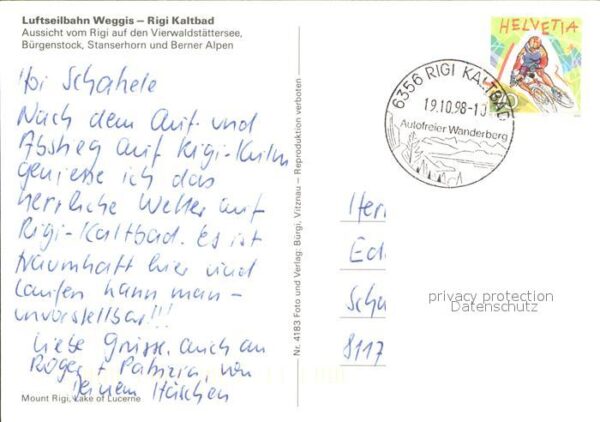 Luftseilbahn Weggis – Rigi Kaltbad
Aussicht vom Rigi auf den Vierwaldstättersee,
Bürgenstock, Stanserhorn und Berner Alpen
Hoi Schahele
Nach dem Auf- und
Abstieg auf Rigi-Kulm
geniesse ich das
herrliche Wetter auf
Rigi-Kaltbad. Es ist
traumhaft hier und
laufen kann man –
unvorstellbar!!!
Liebe Grüsse, auch an
Roger + Patrizia, von
Deinem Häschen
Mount Rigi, Lake of Lucerne
Nr. 4183 Foto und Verlag: Bürgi, Vitznau – Reproduktion verboten
HELVETIA
6356 RIGI KALTBAD
19.10.98-10
Autofreier Wanderberg
Her
Ed
Scha
8117
privacy protection
Datenschutz